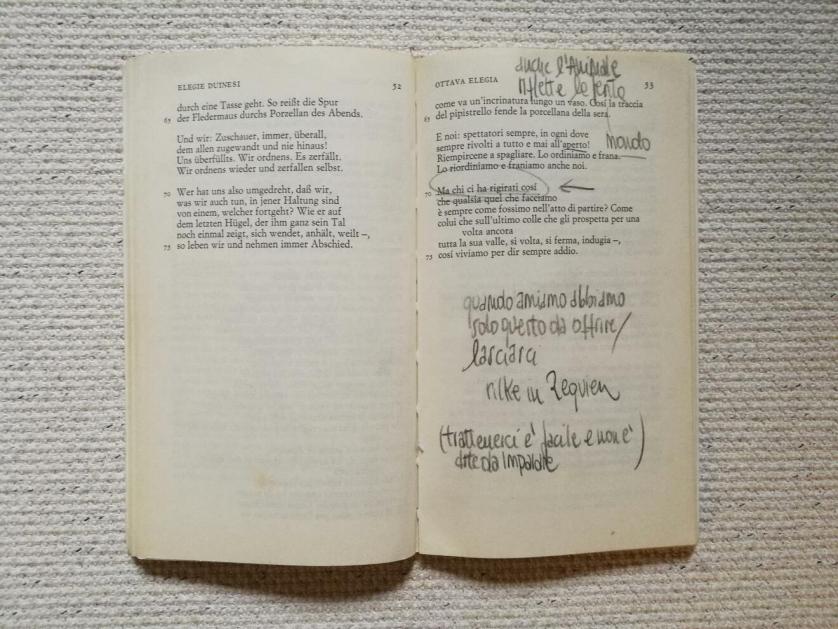 ELEGIE DUINESI 52
durch eine Tasse geht. So reißt die Spur
65 der Fledermaus durchs Porzellan des Abends.
Und wir: Zuschauer, immer, überall,
dem allen zugewandt und nie hinaus!
Uns überfüllts. Wir ordnens. Es zerfällt.
Wir ordnens wieder und zerfallen selbst.
70 Wer hat uns also umgedreht, daß wir,
was wir auch tun, in jener Haltung sind
von einem, welcher fortgeht? Wie er auf
dem letzten Hügel, der ihm ganz sein Tal
noch einmal zeigt, sich wendet, anhält, weilt –,
75 so leben wir und nehmen immer Abschied.
anche l'Animale
riflette le ferite
OTTAVA ELEGIA 53
come va un'incrinatura lungo un vaso. Così la traccia
65 del pipistrello fende la porcellana della sera.
E noi: spettatori sempre, in ogni dove
sempre rivolti a tutto e mai all'aperto!
mondo
Riempircene a spagliare. Lo ordiniamo e frana.
Lo riordiniamo e franiamo anche noi.
70 Ma chi ci ha rigirati così
che qualsia quel che facciamo
è sempre come fossimo nell'atto di partire? Come
colui che sull'ultimo colle che gli prospetta per una
volta ancora
tutta la sua valle, si volta, si ferma, indugia –,
75 così viviamo per dir sempre addio.
quando amiamo abbiamo
solo questo da offrire/
lasciarci
rilke in Requiem
(trattenerci è facile e non è
arte da imparare)